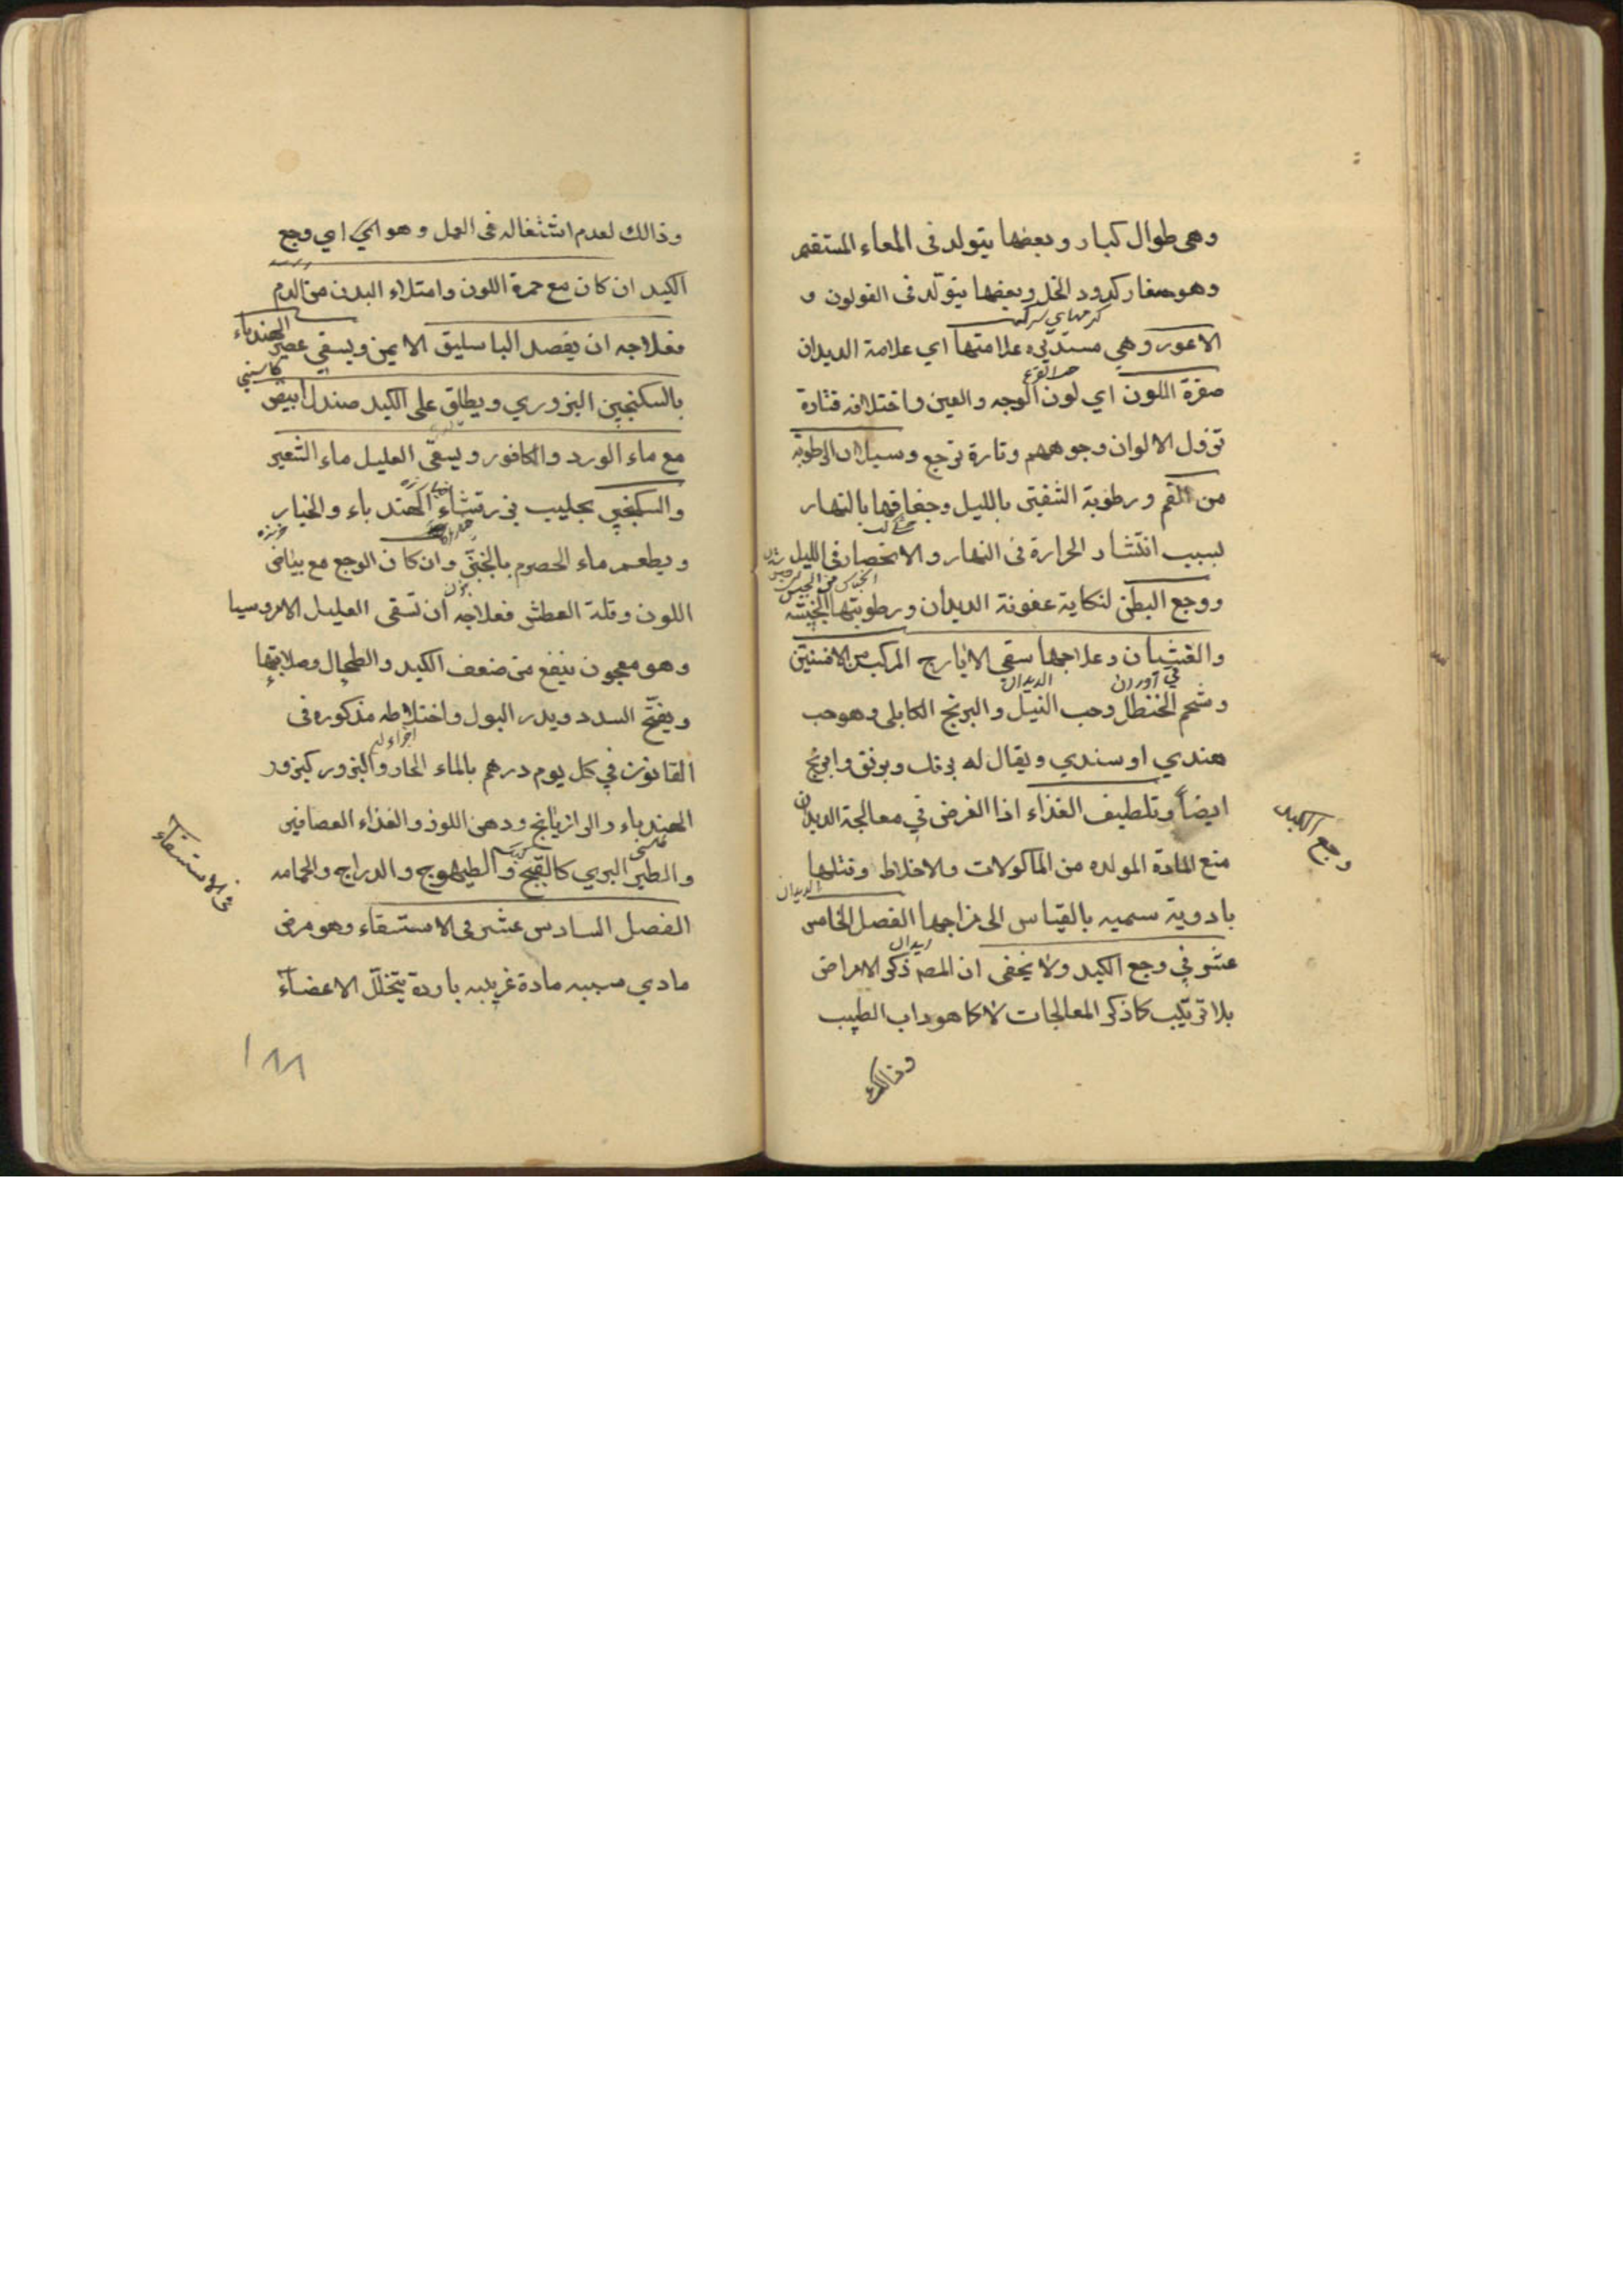 وهى طوال كبار وبعضها يتولد فى المعاء المستقيم
وهو صغار كدود الخل وبعضها يتولّد فى القولون و
الاعور وهي مستديره علامتها اي علامة الديدان
حب القرع
صفرة اللون اي لون الوجه والعين واختلافه فتارة
تزول الالوان وجوههم وتارة ترجع وسيلان الرطوبة
من الفم ورطوبة الشفتى بالليل وجفافها بالنهار
بسبب انتشار الحرارة فى النهار والانحصار فى الليل
ووجع البطن لنكاية عفونة الديدان ورطوبتها الخبيثه
والغشيان وعلاجها سقي الايارج المركب من الافسنتين
الديدان
وشحم الحنظل وحب النيل والبرنج الكابلى وهو حب
هندي او سندي ويقال له برنك وبرنق وابرنج
ايضاً وتلطيف الغذاء اذا الغرض في معالجة الديدان
منع المادة المولده من الماكولات والاخلاط وقتلها
الديدان
بادوية سميه بالقياس الى مزاجها الفصل الخامس
عشر في وجع الكبد ولا يخفى ان المصـ ذكر الامراض
بلا ترتيب كما ذكر المعالجات لا كما هو داب الطبيب
وذالك
وجع الكبد
وذالك لعدم اشتغاله فى العمل وهو اي وجع
الكبد ان كان مع حمرة اللون وامتلاء البدن من الدم
فعلاجه ان يفصد الباسليق الايمن ويسقي عصير الهندباء
كاسني
بالسكنجبين البزوري ويطلق على الكبد صندل ابيض
مع ماء الورد والكافور ويسقى العليل ماء الشعير
والسكنجبين بحليب بزر قثاء الهندباء والخيار
ويطعم ماء الحصرم بالخبز وان كان الوجع مع بياض
اللون وقلة العطش فعلاجه ان تسقى العليل الامروسيا
وهو معجون ينفع من ضعف الكبد والطحال وصلابتها
ويفتح السدد ويدر البول واختلاطه مذكوره فى
اجزاء له
القانون في كل يوم درهم بالماء الحار والبزور كبزور
الهندباء والرازيانج ودهن اللوز والغذاء العصافير
والطير البري كالقبج والطيهوج والدراج والحمامه
الفصل السادس عشر فى الاستسقاء وهو مرض
مادي سببه مادة غريبه باردة يتخلّل الاعضاء
فى الاستسقاء
١٨٨